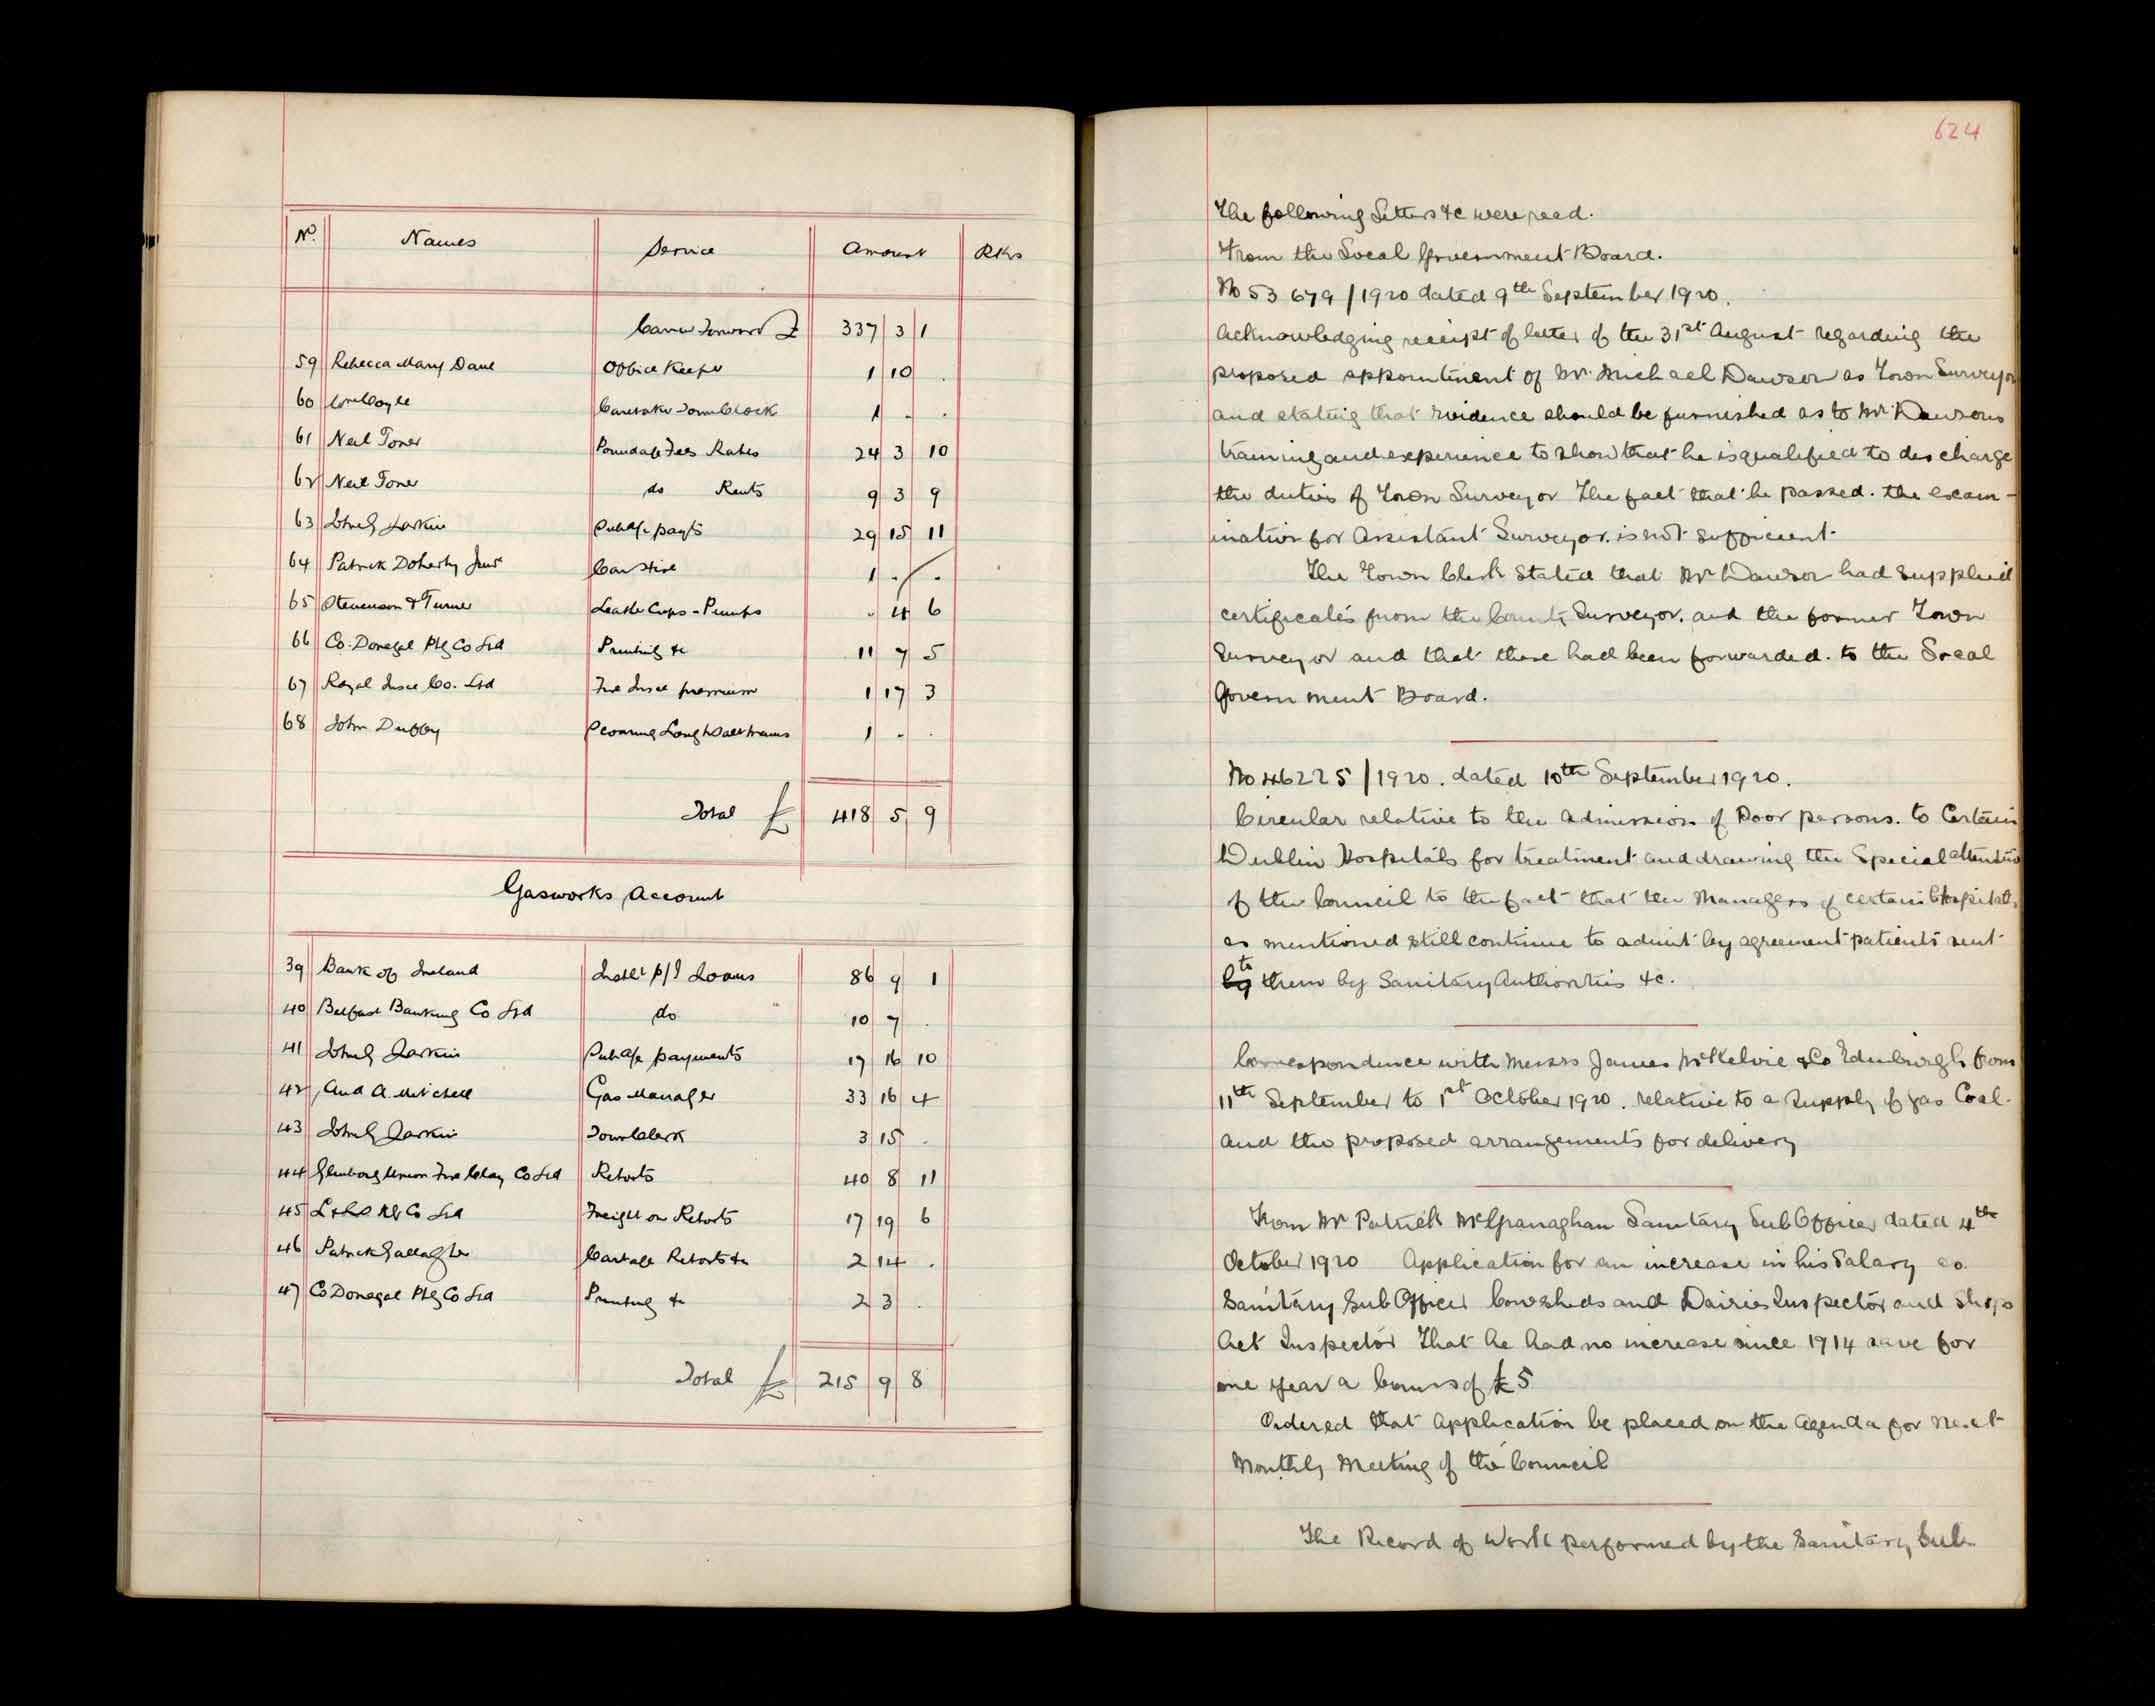 No. Names Service Amount Rks
Carried Forward £ 337 3 1
59 Rebecca Mary Dane Office Keeper 1 10 .
60 Coyle Caretaker Town Clock 1 . .
61 Neil Toner Poundage Fees Rates 24 3 10
62 Neil Toner do Rents 9 3 9
63 John G Larkin Petty pay'ts 29 15 11
64 Patrick Doherty Junr Car Hire 1 . .
65 Stevenson & Turner Leather Cups - Pumps . 4 6
66 Co. Donegal Ptg Co Ltd Printing &c 11 7 5
67 Royal Insce Co. Ltd Fire Insce premium 1 17 3
68 John Duffy Cleaning Lough 1 . .
Total £ 418 5 9
Gasworks Account
39 Bank of Ireland Loans 86 9 1
40 Belfast Banking Co Ltd do 10 7 .
41 John G Larkin payments 17 16 10
42 And A. Mitchell Gas Manager 33 16 4
43 John G Larkin Town Clerk 3 15 .
44 Glenboig Union Fire Clay Co Ltd Retorts 40 8 11
45 L & L S Rly Co Ltd Freight on Retorts 17 19 6
46 Patrick Gallagher Cartage Retorts &c 2 14 .
47 Co Donegal Ptg Co Ltd Printing &c 2 3 .
Total £ 215 9 8
624
The following Letters &c were read.
From the Local Government Board.
No 53 679 / 1920 dated 9th September 1920.
Acknowledging receipt of letter of the 31st August regarding the
proposed appointment of Mr. Michael Dawson as Town Surveyor
and stating that evidence should be furnished as to Mr. Dawsons
training and experience to show that he is qualified to discharge
the duties of Town Surveyor The fact that he passed. the exam-
ination for Assistant Surveyor. is not sufficient.
The Town Clerk stated that Mr Dawson had supplied
certificates from the County Surveyor. and the former Town
Surveyor and that these had been forwarded. to the Local
Government Board.
No 46225 / 1920. dated 10th September 1920.
Circular relative to the admission of Poor persons. to Certain
Dublin Hospitals for treatment and drawing the Special attention
of the Council to the fact that the Managers of certain Hospitals
as mentioned still continue to admit by agreement patients sent
by to them by Sanitary Authorities &c.
Correspondence with Messrs James McKelvie & Co Edinburgh from
11th September to 1st October 1920. relative to a supply of gas Coal.
and the proposed arrangements for delivery
From Mr Patrick McGranaghan Sanitary Sub Officer dated 4th
October 1920 Application for an increase in his Salary as.
Sanitary Sub Officer Cowsheds and Dairies Inspector and Shops
Act Inspector That he had no increase since 1914 save for
one year a bonus of £5
Ordered that Application be placed on the Agenda for next
Monthly Meeting of the Council
The Record of Work performed by the Sanitary Sub.